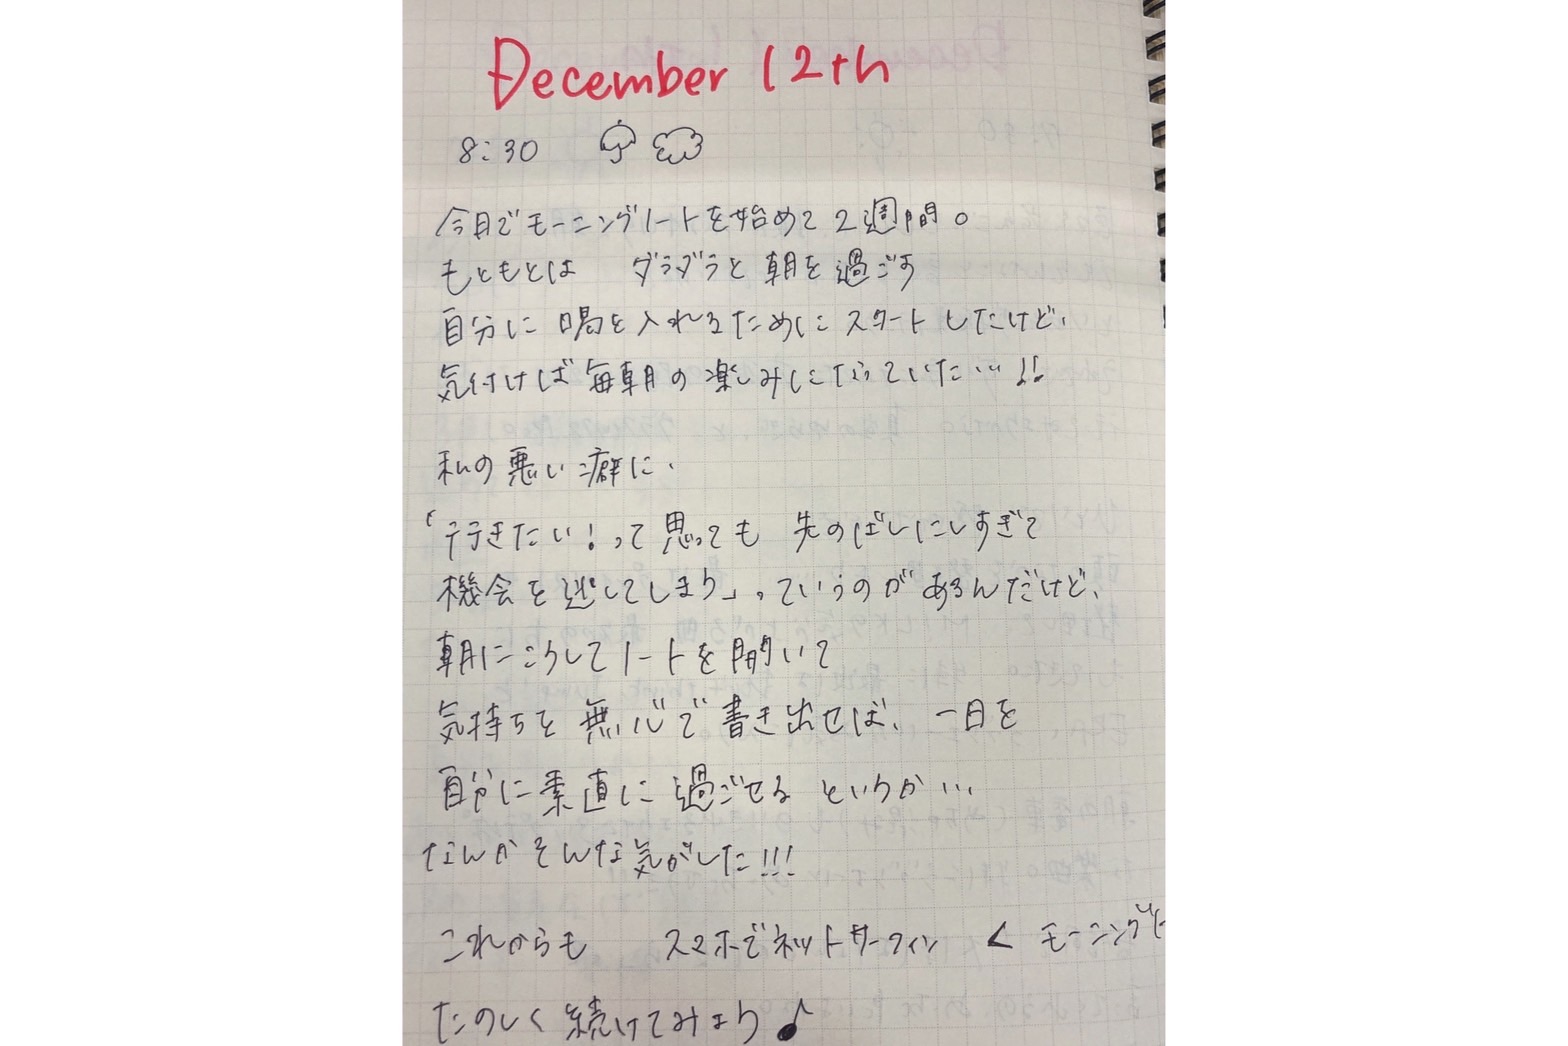 December 12th
8:30
今日でモーニングノートを始めて2週間。
もともとは ダラダラと朝を過ごす
自分に喝を入れるためにスタートしたけど、
気付けば毎朝の楽しみになっていた…!!
私の悪い癖に、
「行きたい!って思っても 先のばしにしすぎて
機会を逃してしまう」っていうのがあるんだけど、
朝にこうしてノートを開いて
気持ちを無心で書き出せば、一日を
自分に素直に過ごせるというか…
なんかそんな気がした!!!
これからも スマホでネットサーフィン < モーニング
たのしく続けてみよう♪